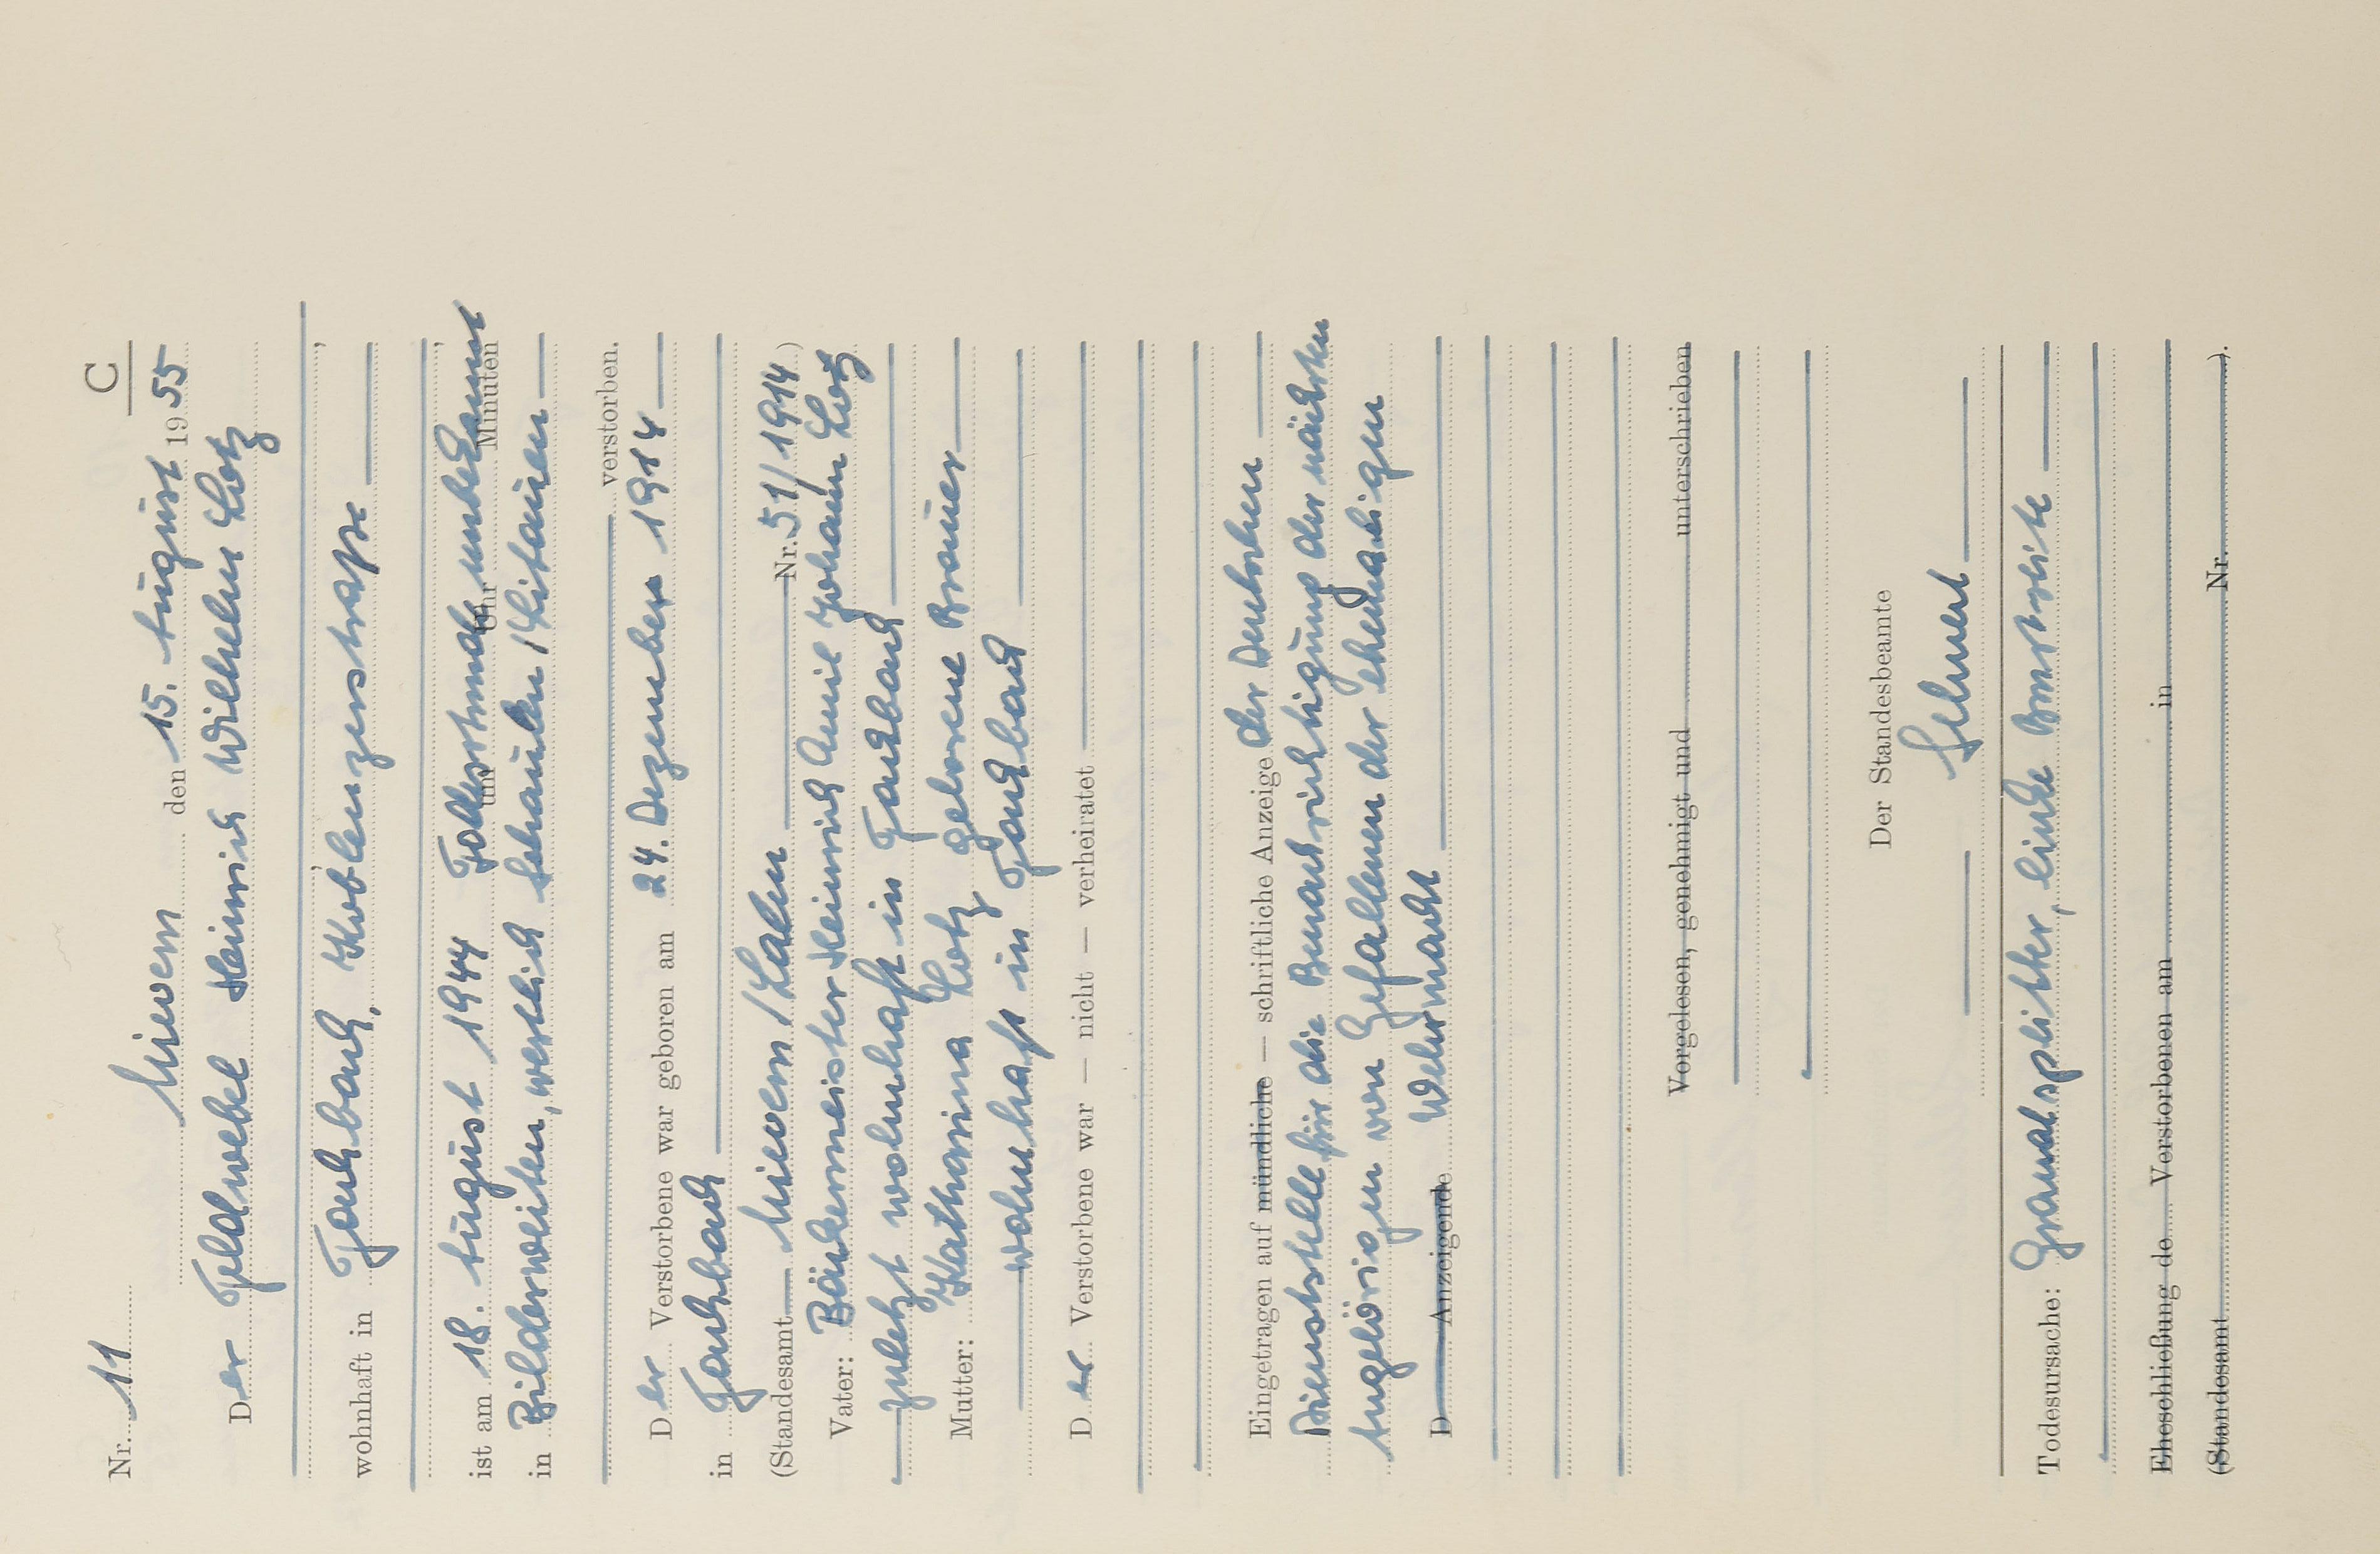 C
Nr. 11
Miwern den 15. August 1955
Der Feldwebel Heinrich Wilhelm Lotz
wohnhaft in Fachbach, Koblenzerstraße
ist am 18. August 1944 Todesstunde unbekannt Uhr und Minuten
in Bilderweiten, westlich Schaulen / Litauen
verstorben.
Der Verstorbene war geboren am 24. Dezember 1914
in Fachbach
(Standesamt Miwern / Lahn Nr. 51/1914)
Vater: Bäckermeister Heinrich Emil Johann Lotz
zuletzt wohnhaft in Fachbach
Mutter: Katharina Lotz geborene Brauer
wohnhaft in Fachbach
Der Verstorbene war — nicht — verheiratet
Eingetragen auf mündliche — schriftliche Anzeige der Deutschen
Dienststelle für die Benachrichtigung der nächsten
Angehörigen von Gefallenen der ehemaligen
D Anzeigende Wehrmacht
Vorgelesen, genehmigt und unterschrieben
Der Standesbeamte
Todesursache: Granatsplitter, linke Brustseite
Eheschließung de Verstorbenen am in
(Standesamt Nr. ).